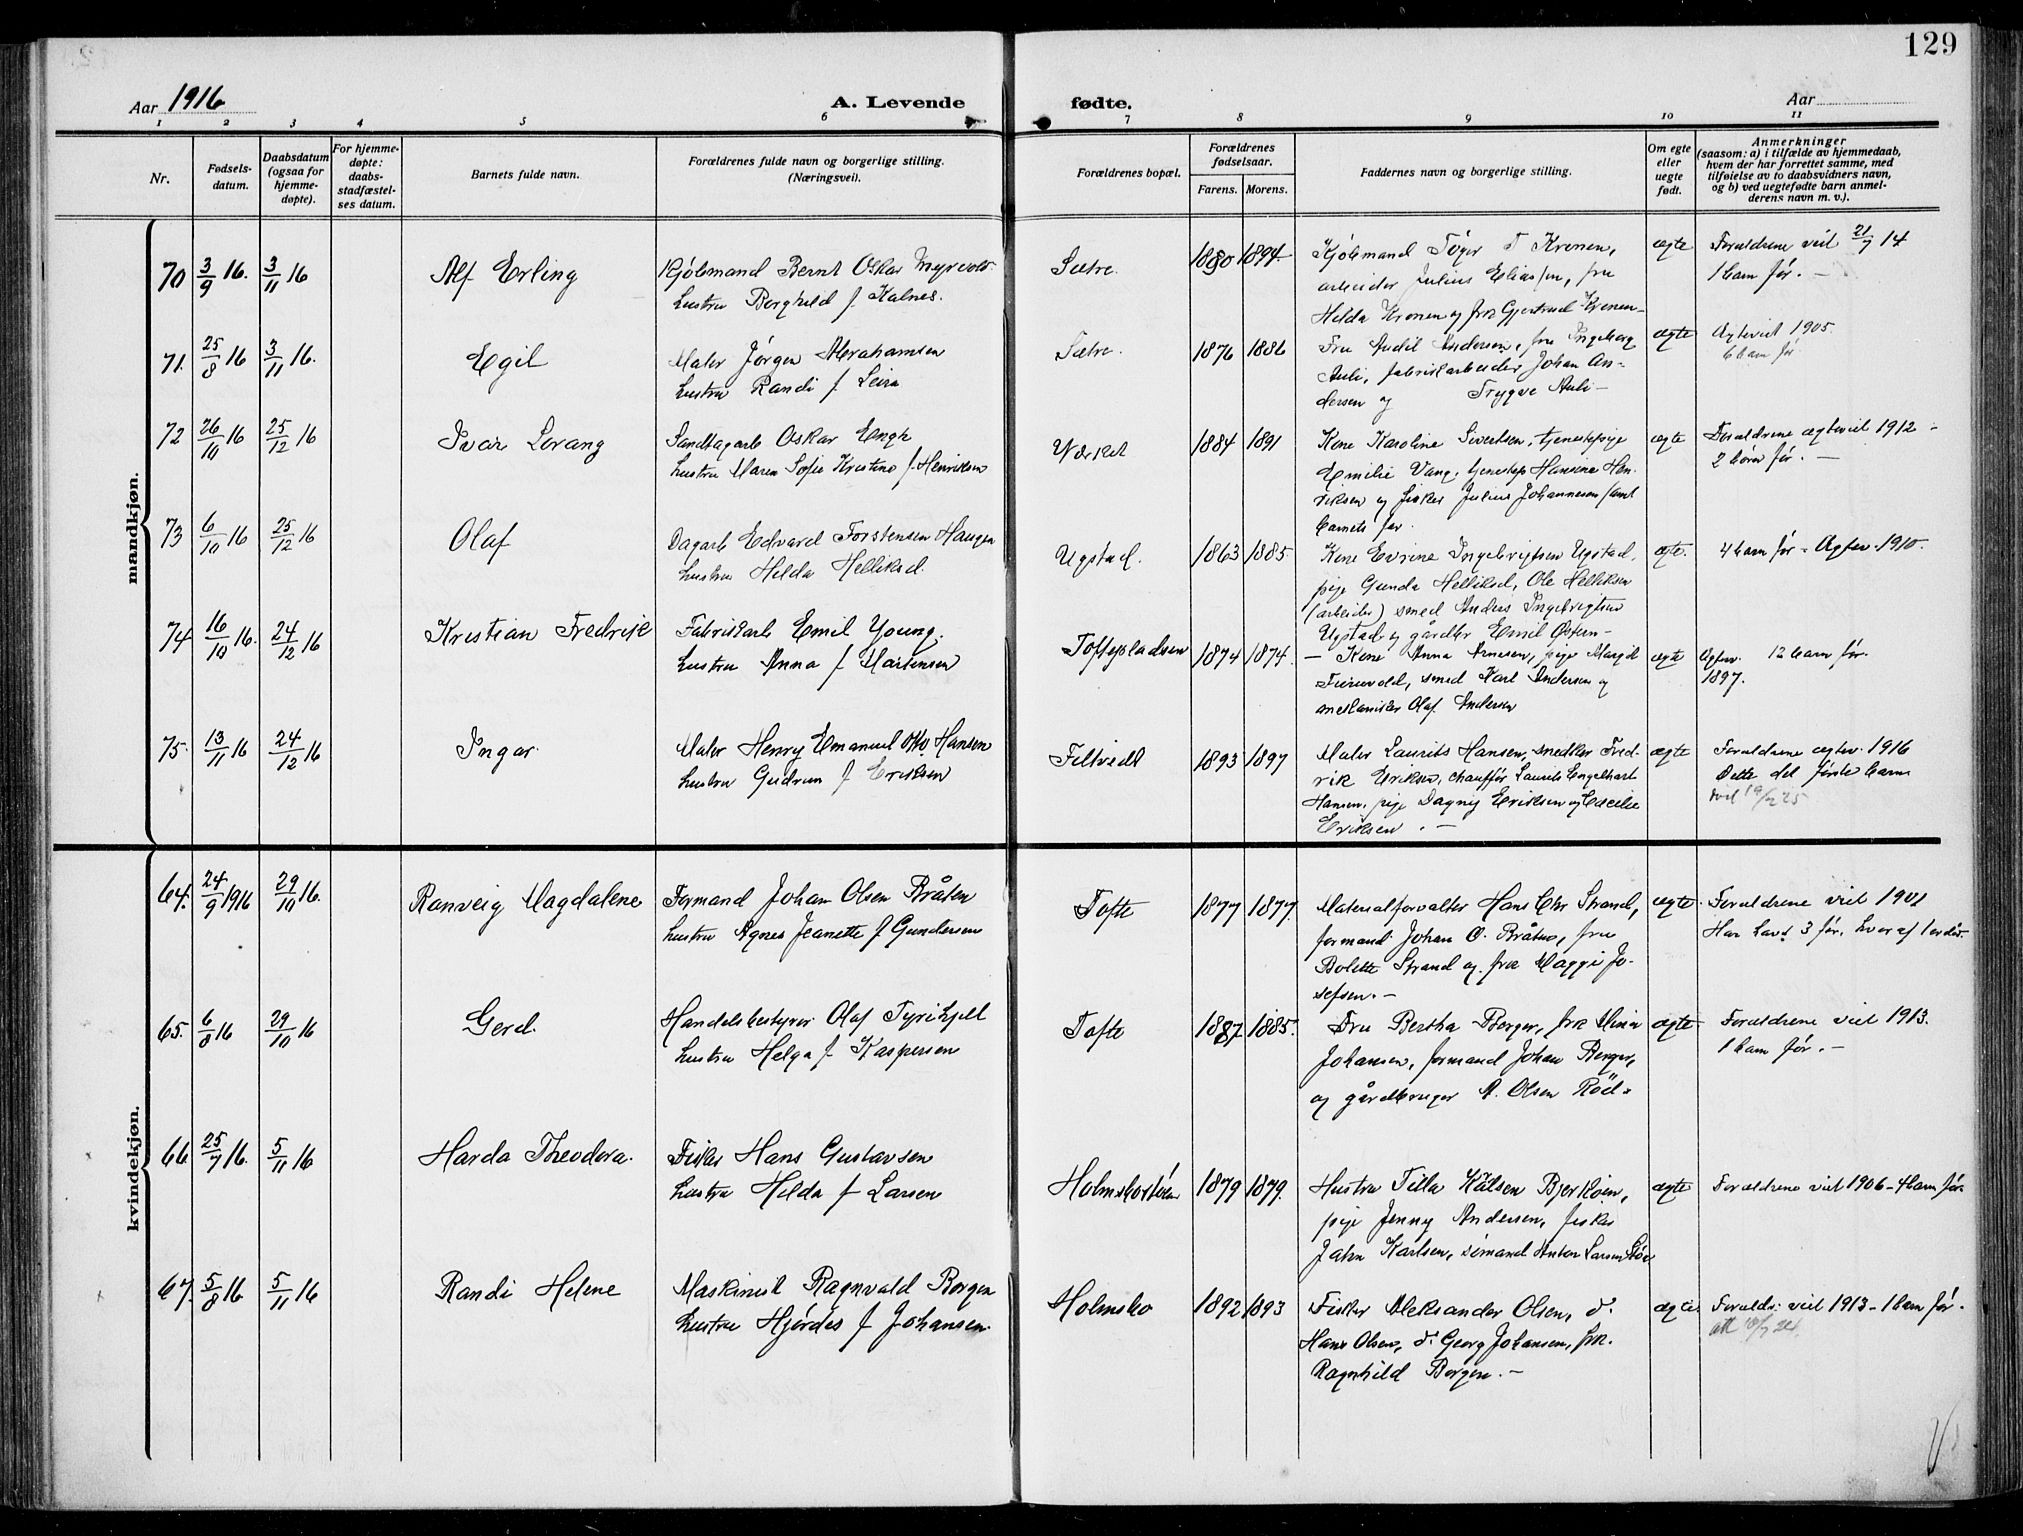 129
Aar 1916
A. Levende fødte.
Aar
1 2 3 4 5 6 7 8 9 10 11
Nr.
Fødsels-
datum.
Daabsdatum
(ogsaa for
hjemme-
døpte).
For hjemme-
døpte:
daabs-
stadfæstel-
ses datum.
Barnets fulde navn.
Forældrenes fulde navn og borgerlige stilling.
(Næringsvei).
Forældrenes bopæl.
Forældrenes
fødselsaar.
Farens. Morens.
Faddernes navn og borgerlige stilling.
Om egte
eller
uegte
født.
Anmerkninger
(saasom: a) i tilfælde av hjemmedaab,
hvem der har forrettet samme, med
tilføielse av to daabsvidners navn,
og b) ved uegtefødte barn anmel-
derens navn m. v.).
mandkjøn.
70 3/9 16. 3/11 16
Alf Erling
Kjøbmand Bernt Oskar Myrvold
hustru Borghild f Kalnes.
Sætre.
1880 1894.
Kjøbmand Töger T Kronen,
arbeider Julius Eliassen, fru
Hilda Kronen og frk Gjertrud Kronen
ægte
Forældrene viet 21/7 14
1 barn før. –
71. 25/8 16 3/11 16.
Egil
Maler Jørgen Abrahamsen
hustru Randi f Leira
Sætre.
1876 1886
Fru Andersen, fru Ingeborg
Auli, fabrikarbeider Johan An-
dersen og Trygve Auli –
ægte
Ægteviet 1905.
6 barn før.
72 26/10 16 25/12 16
Ivar Lorang
Sandtagarb Oskar Engh
hustru Maren Sofie Kristine f Henriksen
Verket
1884 1891
Kone Karoline Sivertsen, tjenestepige
Emilie Vang, tjenestep Hansine Hen-
riksen og fisker Julius Johannesen samt
barnets far.
ægte
Forældrene ægteviet 1912 –
2 børn før. –
73 6/10 16 25/12 16
Olaf
Dagarb Edvard Torstensen Haugen
hustru Hilda Helliksd.
Ugstad.
1863 1885.
Kone Evrine Ingebrigtsen Ugstad,
pige Gunda Helliksd, Ole Helliksen
(arbeider) smed Anders Ingebrigtsen
Ugstad og gårdbr Emil Østern –
ægte.
4 barn før – Ægtev. 1910.
74 16/10 16. 24/12 16
Kristian Fredrik
Fabrikarb Emil Young.
hustru Anna f Martensen
Toftepladsen
1874 1874.
– Kone Anna Arnesen, pige Margit
smed Karl Andersen og
mekaniker Olaf Andersen
ægte
Ægtev. 12 barn før.
1897.
75. 13/11 16 24/12 16
Ingar.
Maler Henry Emanuel Otto Hansen
hustru Gudrun f Eriksen
Filtvedt
1893 1897
Maler Laurits Hansen, snedker Fred-
rik Eriksen, chauffør Laurits Engelhart
Hansen, pige Dagny Eriksen og Cæcilie
Eriksen. –
ægte
Forældrene ægtev. 1916
Dette det første barn
kvindekjøn.
64. 24/9 1916 29/10 16.
Ranveig Magdalene
Formand Johan Olsen Bråten
hustru Agnes Jeanette f Gundersen
Tofte
1877 1877.
Materialforvalter Hans Chr Strand,
formand Johan O. Bråten, fru
Bolette Strand og frk Maggi Jo-
sefsen. –
ægte.
Forældrene viet 1901
Har havt 3 før, hvoraf 1 er død.
65. 6/8 16 29/10 16
Gerd.
Handelsbestyrer Olaf Tyrihjell
hustru Helga f Kaspersen
Tofte
1887 1885.
Fru Bertha Berger, frk Mina
Johansen, formand Johan Berger,
og gårdbruger A. Olsen Röd –
ægte
Forældrene viet 1913.
1 barn før. –
66 25/7 16. 5/11 16
Harda Theodora.
Fisker Hans Gustavsen
hustru Hilda f Larsen
1879 1879.
Hustru Tilla Bjerkøen,
pige Jenny Andersen, fisker
Jahn Karlsen, sømand Anton Larsen
ægte
Forældrene viet 1906 – 4 barn før
67. 5/8 16 5/11 16
Randi Helene
Maskinist Ragnvald Borgen
hustru Hjørdis f Johansen.
Holmsbo
1892 1893
Fisker Aleksander Olsen, d°
Hans Olsen, d° Georg Johansen, frk.
Ragnhild Borgen. –
ægte.
Forældr. viet 1913 – 1 barn før.